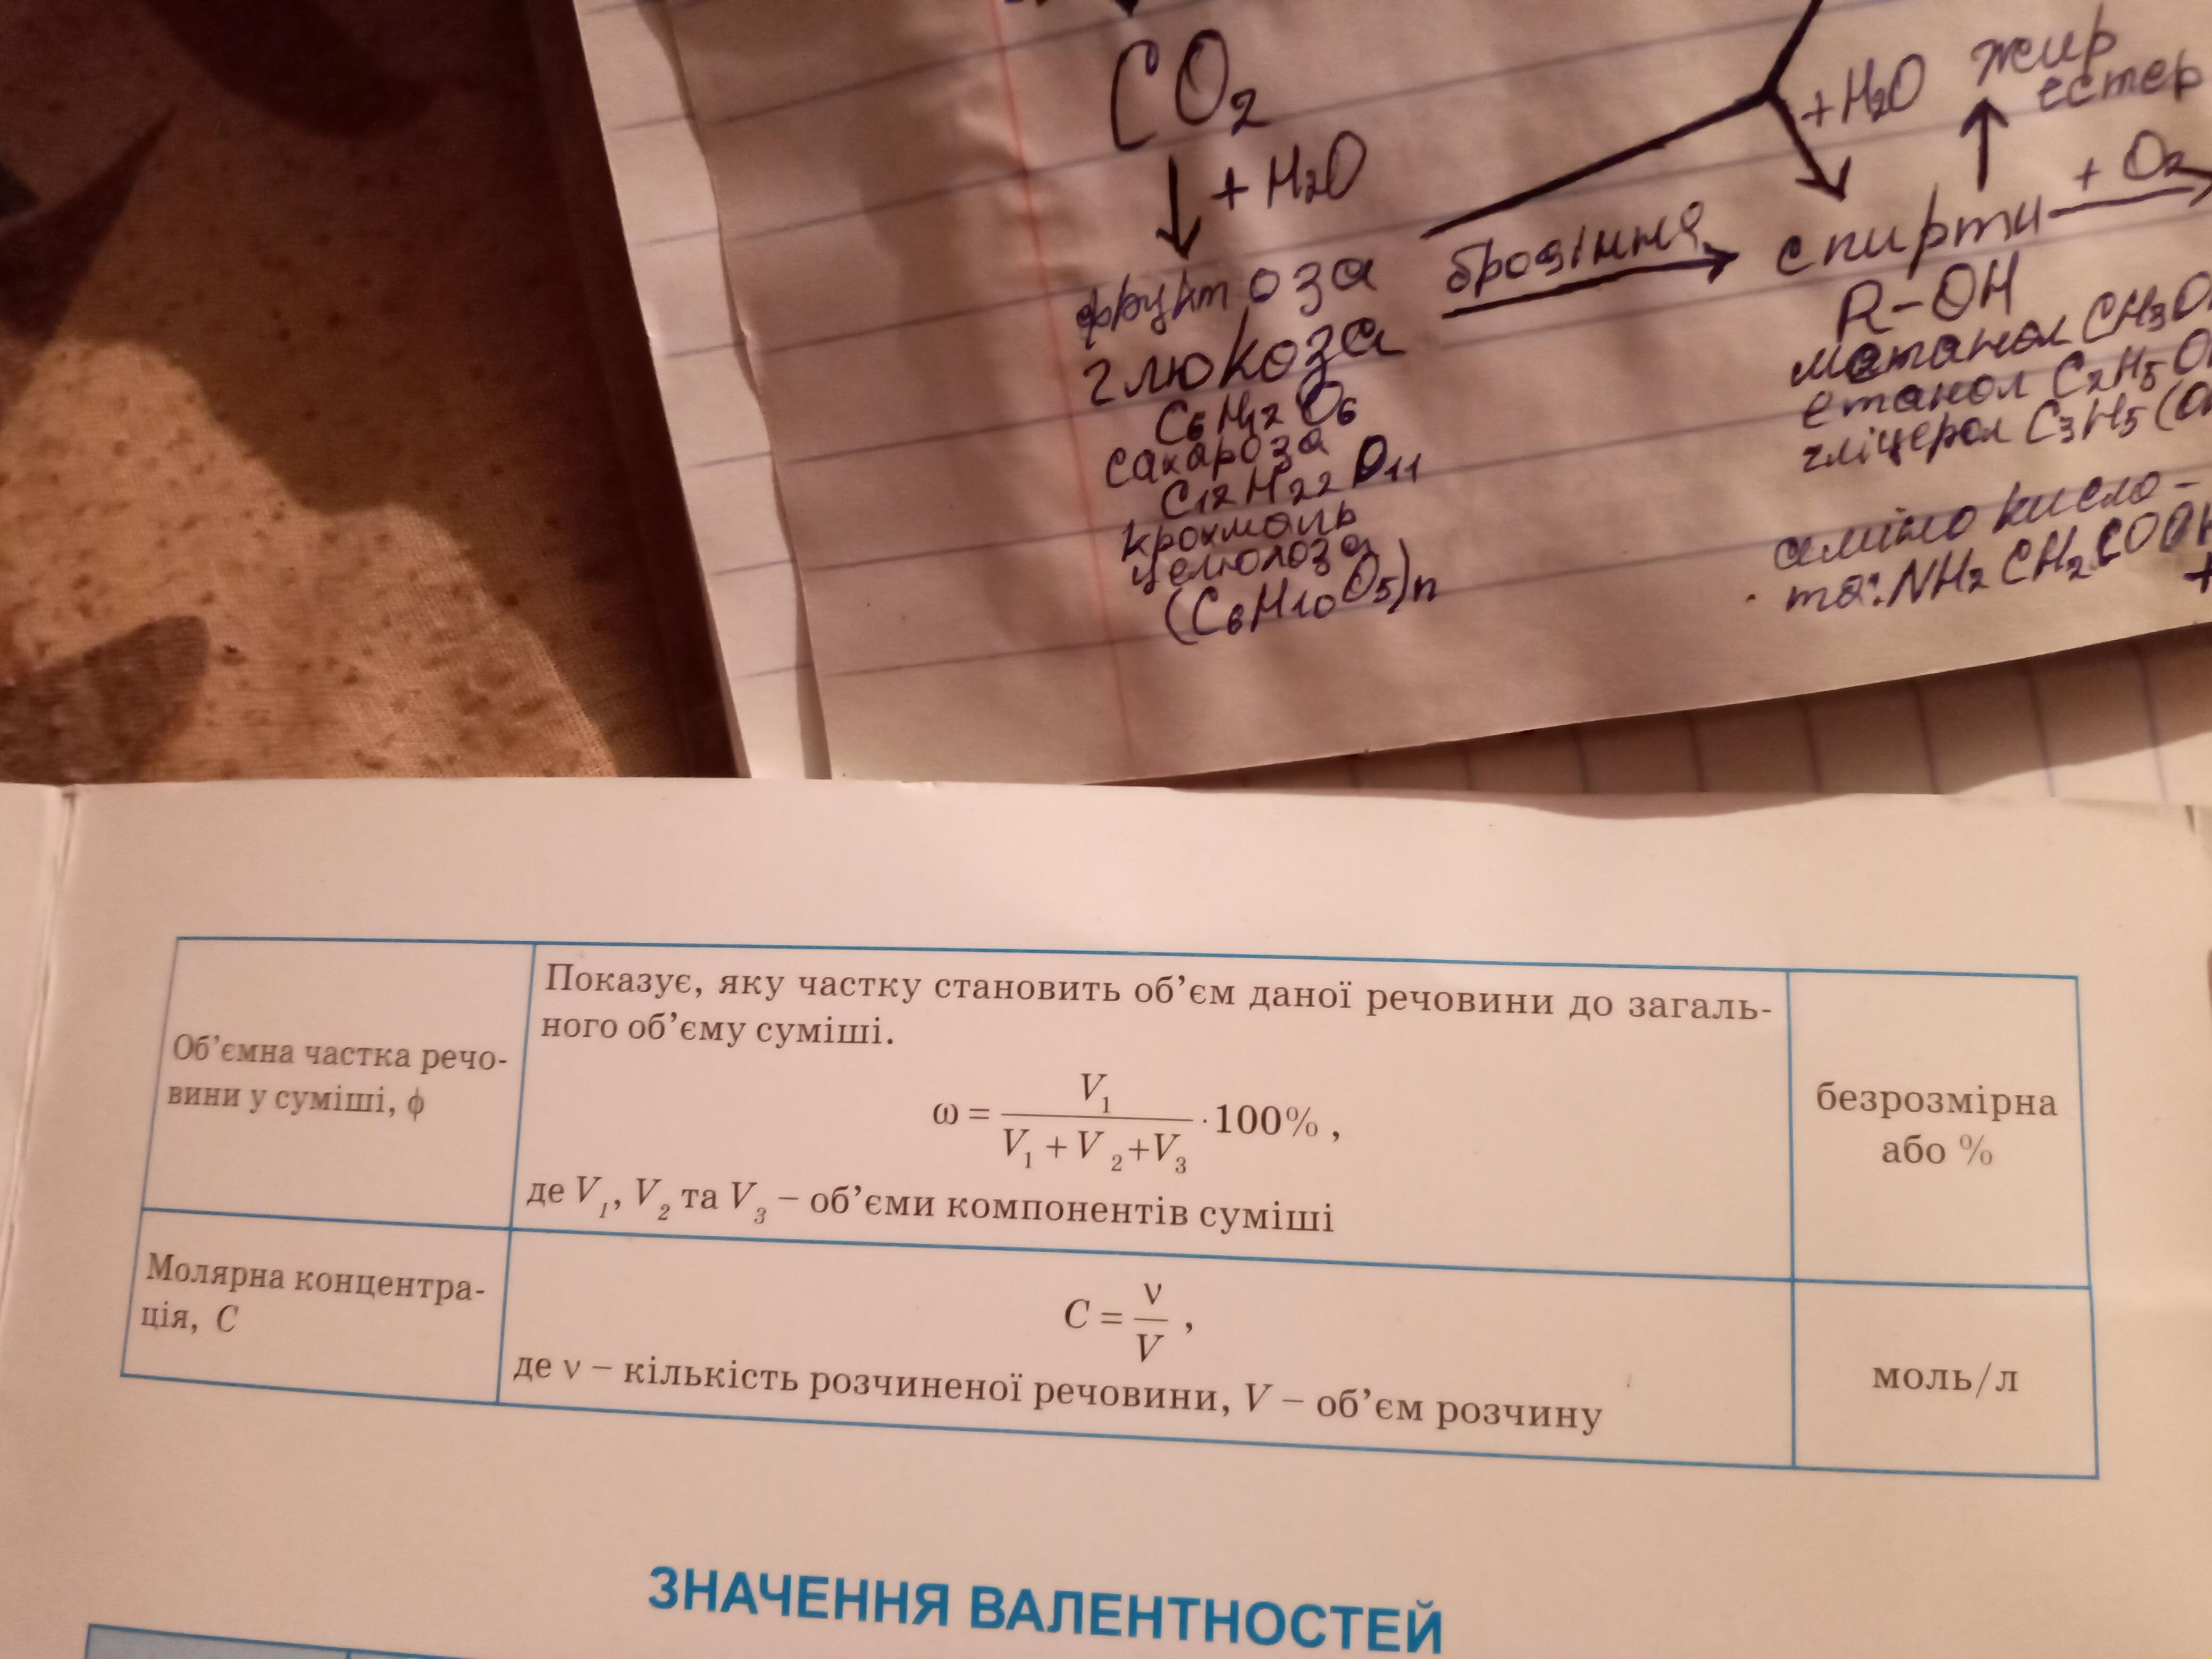 CO₂
+ H₂O
фруктоза
глюкоза
C₆H₁₂O₆
сахароза
C₁₂H₂₂O₁₁
крохмаль
целюлоза
(C₆H₁₀O₅)n
бродіння
+H₂O
жир
естер
спирти
+ O₂
R-OH
метанол CH₃O
етанол C₂H₅O
гліцерол C₃H₅(O
аміно кисло-
та: NH₂CH₂COOH
+
Об’ємна частка речо-
вини у суміші, ϕ
Показує, яку частку становить об’єм даної речовини до загаль-
ного об’єму суміші.
ω = V₁ / (V₁ + V₂ + V₃) · 100% ,
де V₁, V₂ та V₃ – об’єми компонентів суміші
безрозмірна
або %
Молярна концентра-
ція, C
C = ν / V ,
де ν – кількість розчиненої речовини, V – об’єм розчину
моль/л
ЗНАЧЕННЯ ВАЛЕНТНОСТЕЙ